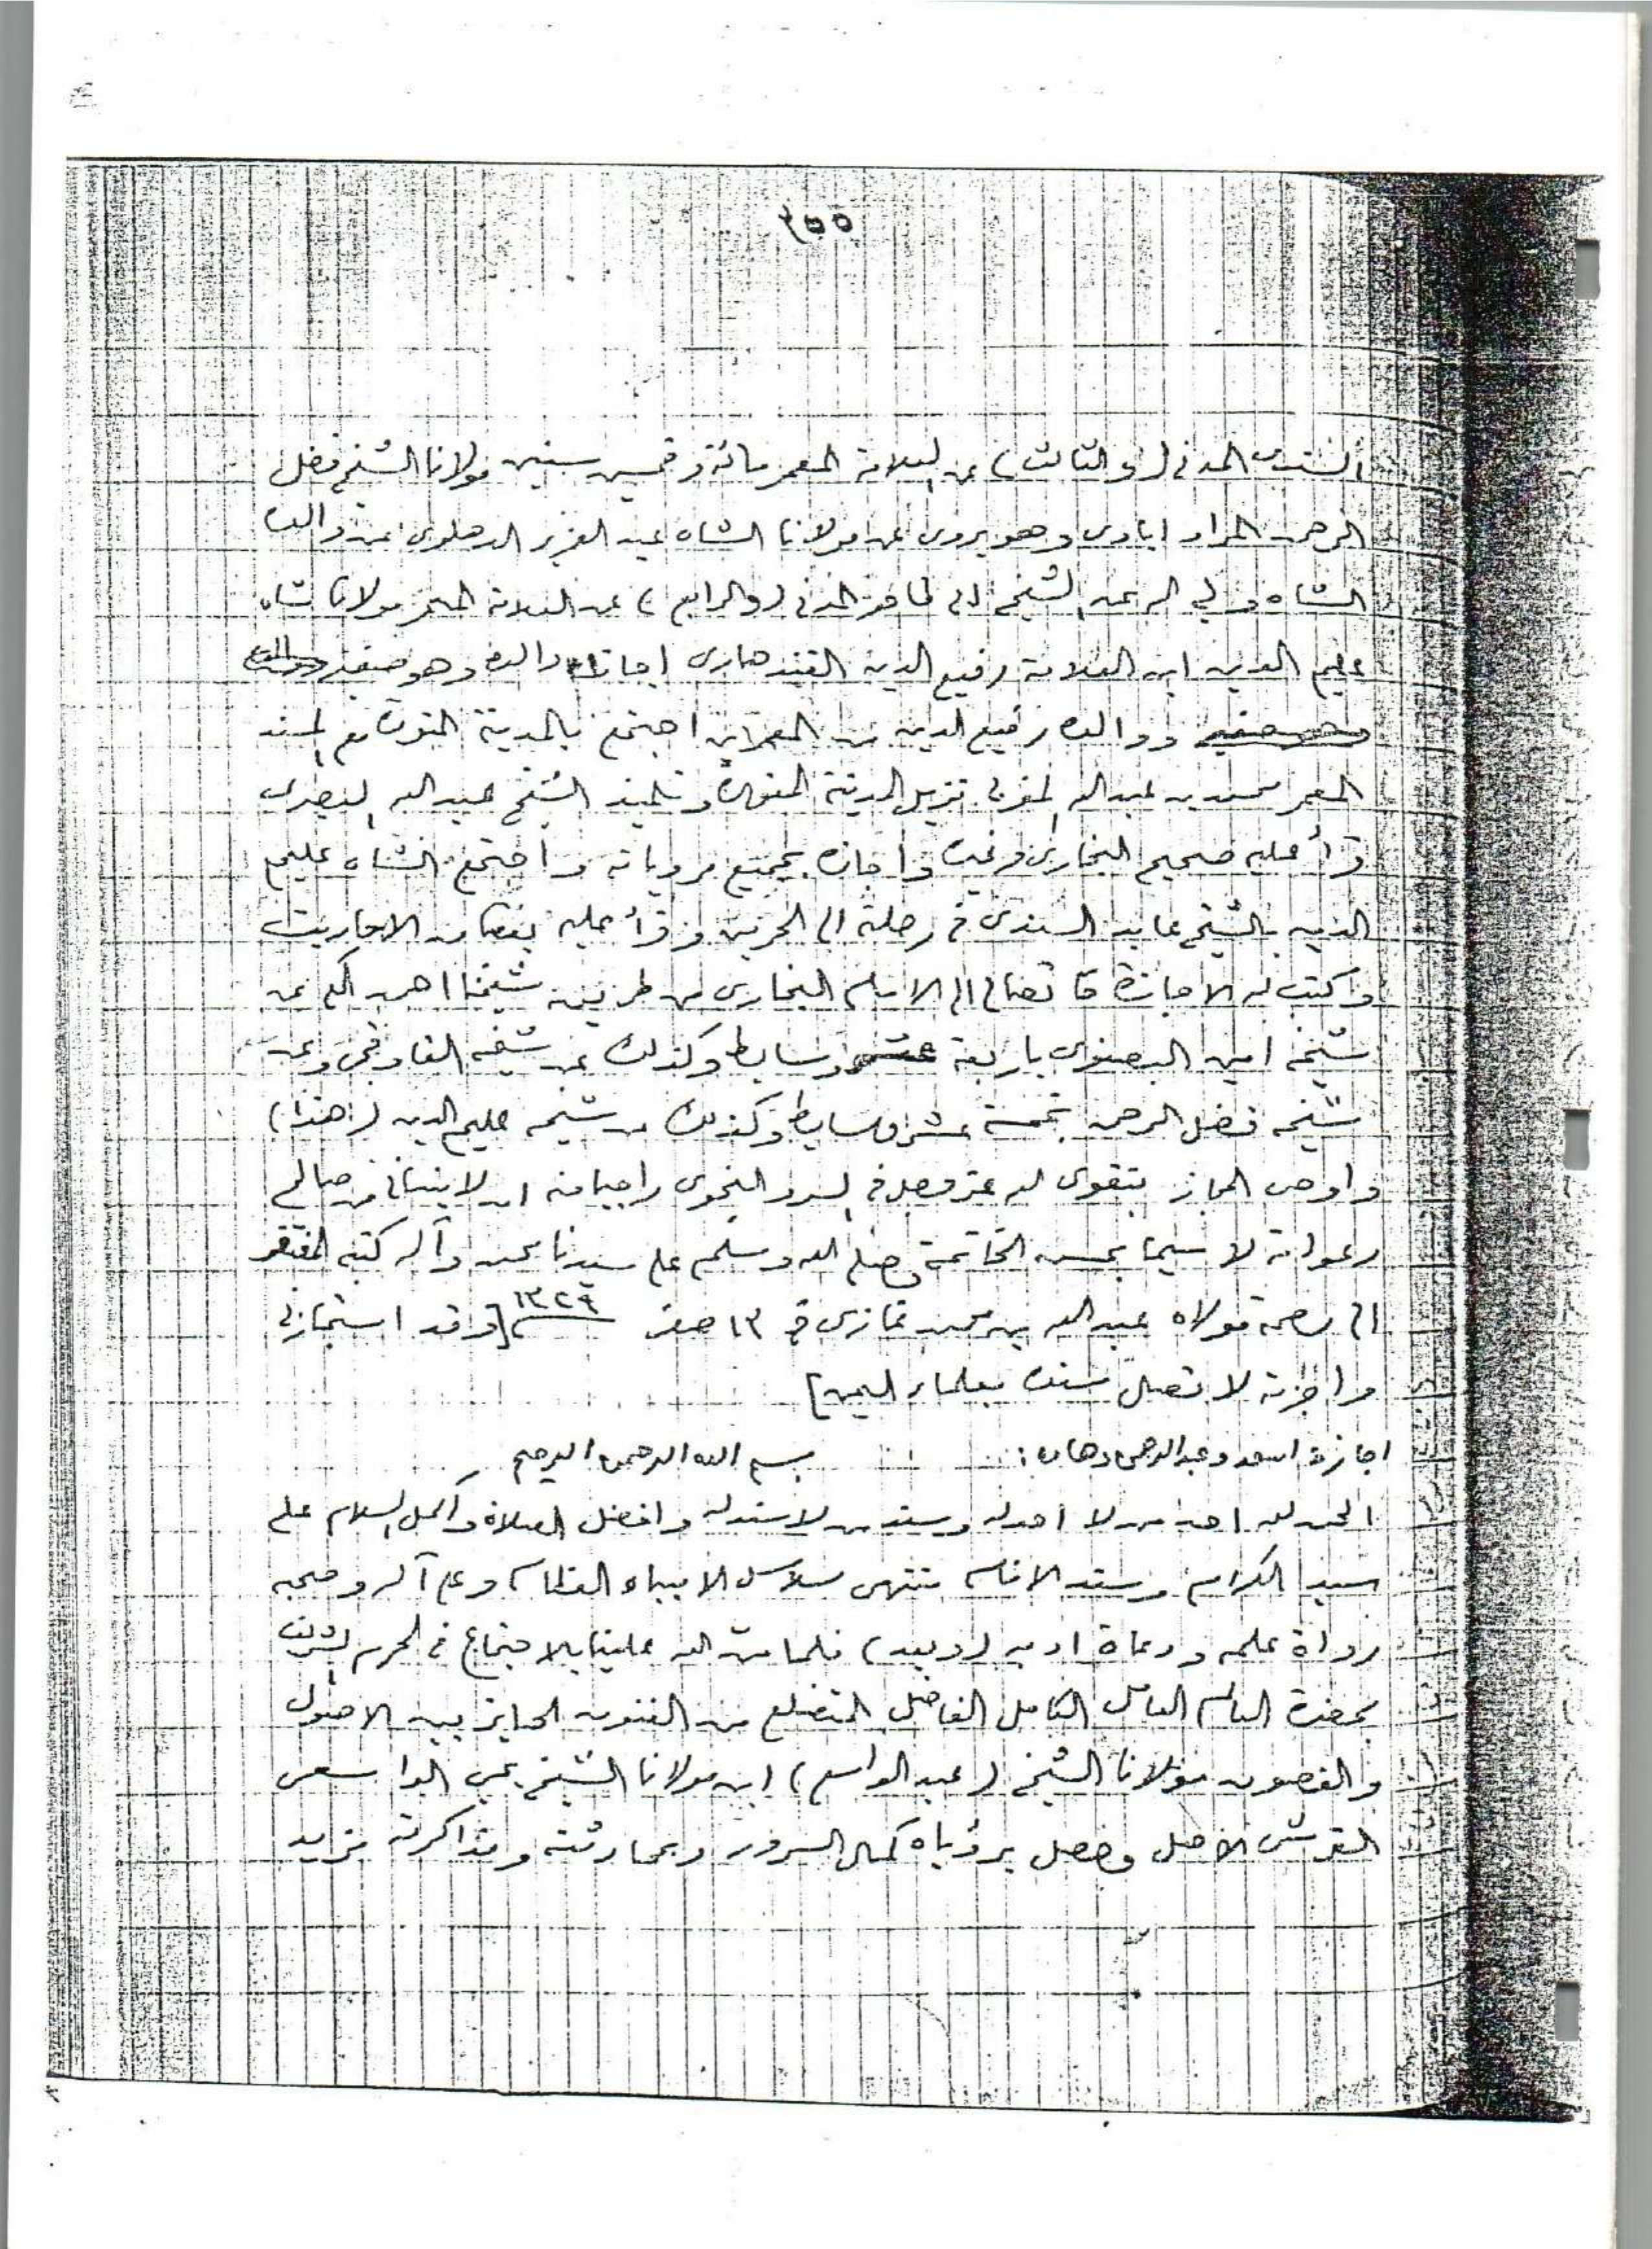 ٢٥٥
السندى المدنى (والثالث) عن العلامة المعمر مائة وخمس سنين مولانا الشيخ فضل
الرحمن المراد ابادى وهو يروى عن مولانا الشاه عبد العزيز الدهلوى عن والده
الشاه ولي الله عن الشيخ ابى طاهر المدنى (والرابع) عن العلامة المعمر مولانا شاه
عليم الدين ابن العلامة رفيع الدين القندهارى اجازة والده وهو صغير
ووالده رفيع الدين من المعمرين اجتمع بالمدينة المنورة مع المسند
المعمر محمد بن عبد الله المغربى نزيل المدينة المنورة وتلميذ الشيخ عبد الله البصرى
قرأ عليه صحيح البخارى وغيره واجازه بجميع مروياته واجتمع الشاه عليم
الدين بالشيخ عابد السندى فى رحلته الى الحرمين وقرأ عليه بعضا من الاحاديث
وكتب له الاجازة فاتصالى الى الامام البخارى من طريق شيخنا احمد المكى عن
شيخه امين البصنوى باربعة عشر وسايط وكذلك عن شيخه القاوقجى وعن
شيخه فضل الرحمن بخمسة عشر وسايط وكذلك من شيخه عليم الدين (هذا)
واوصى المجاز بتقوى الله عز وجل فى السر والنجوى راجيا منه ان لا ينسانى من صالح
دعواته لا سيما بحسن الخاتمة وصلى الله وسلم على سيدنا محمد وآله كتبه المفتقر
الى رحمة مولاه عبد الله بن محمد غازى فى ١٣ صفر ١٣٢٩ [وقد استجازنى
واجزته لاتصال سنده بعلماء اليمن]
اجازة اسعد وعبد الرحمن دهان: بسم الله الرحمن الرحيم
الحمد لله احد من لا احد له وسند من لا سند له وافضل الصلاة وأكمل السلام على
سيدا الكرام وسند الانام منتهى سلاسل الانبياء العظام وعلى آله وصحبه
رواة علمه ودعاة ادبه (وبعد) فلما من الله علينا بالاجتماع فى الحرم الشريف
بحضرة العالم العامل الكامل الفاضل المتضلع من الفنون الحايز بين الاصول
والغصون مولانا الشيخ (عبد الواسع) ابن مولانا الشيخ يحيى الواسعى
القرشى الاصل وحصل برؤياه كمال السرور وبمحادثته ومذاكرته مزيد